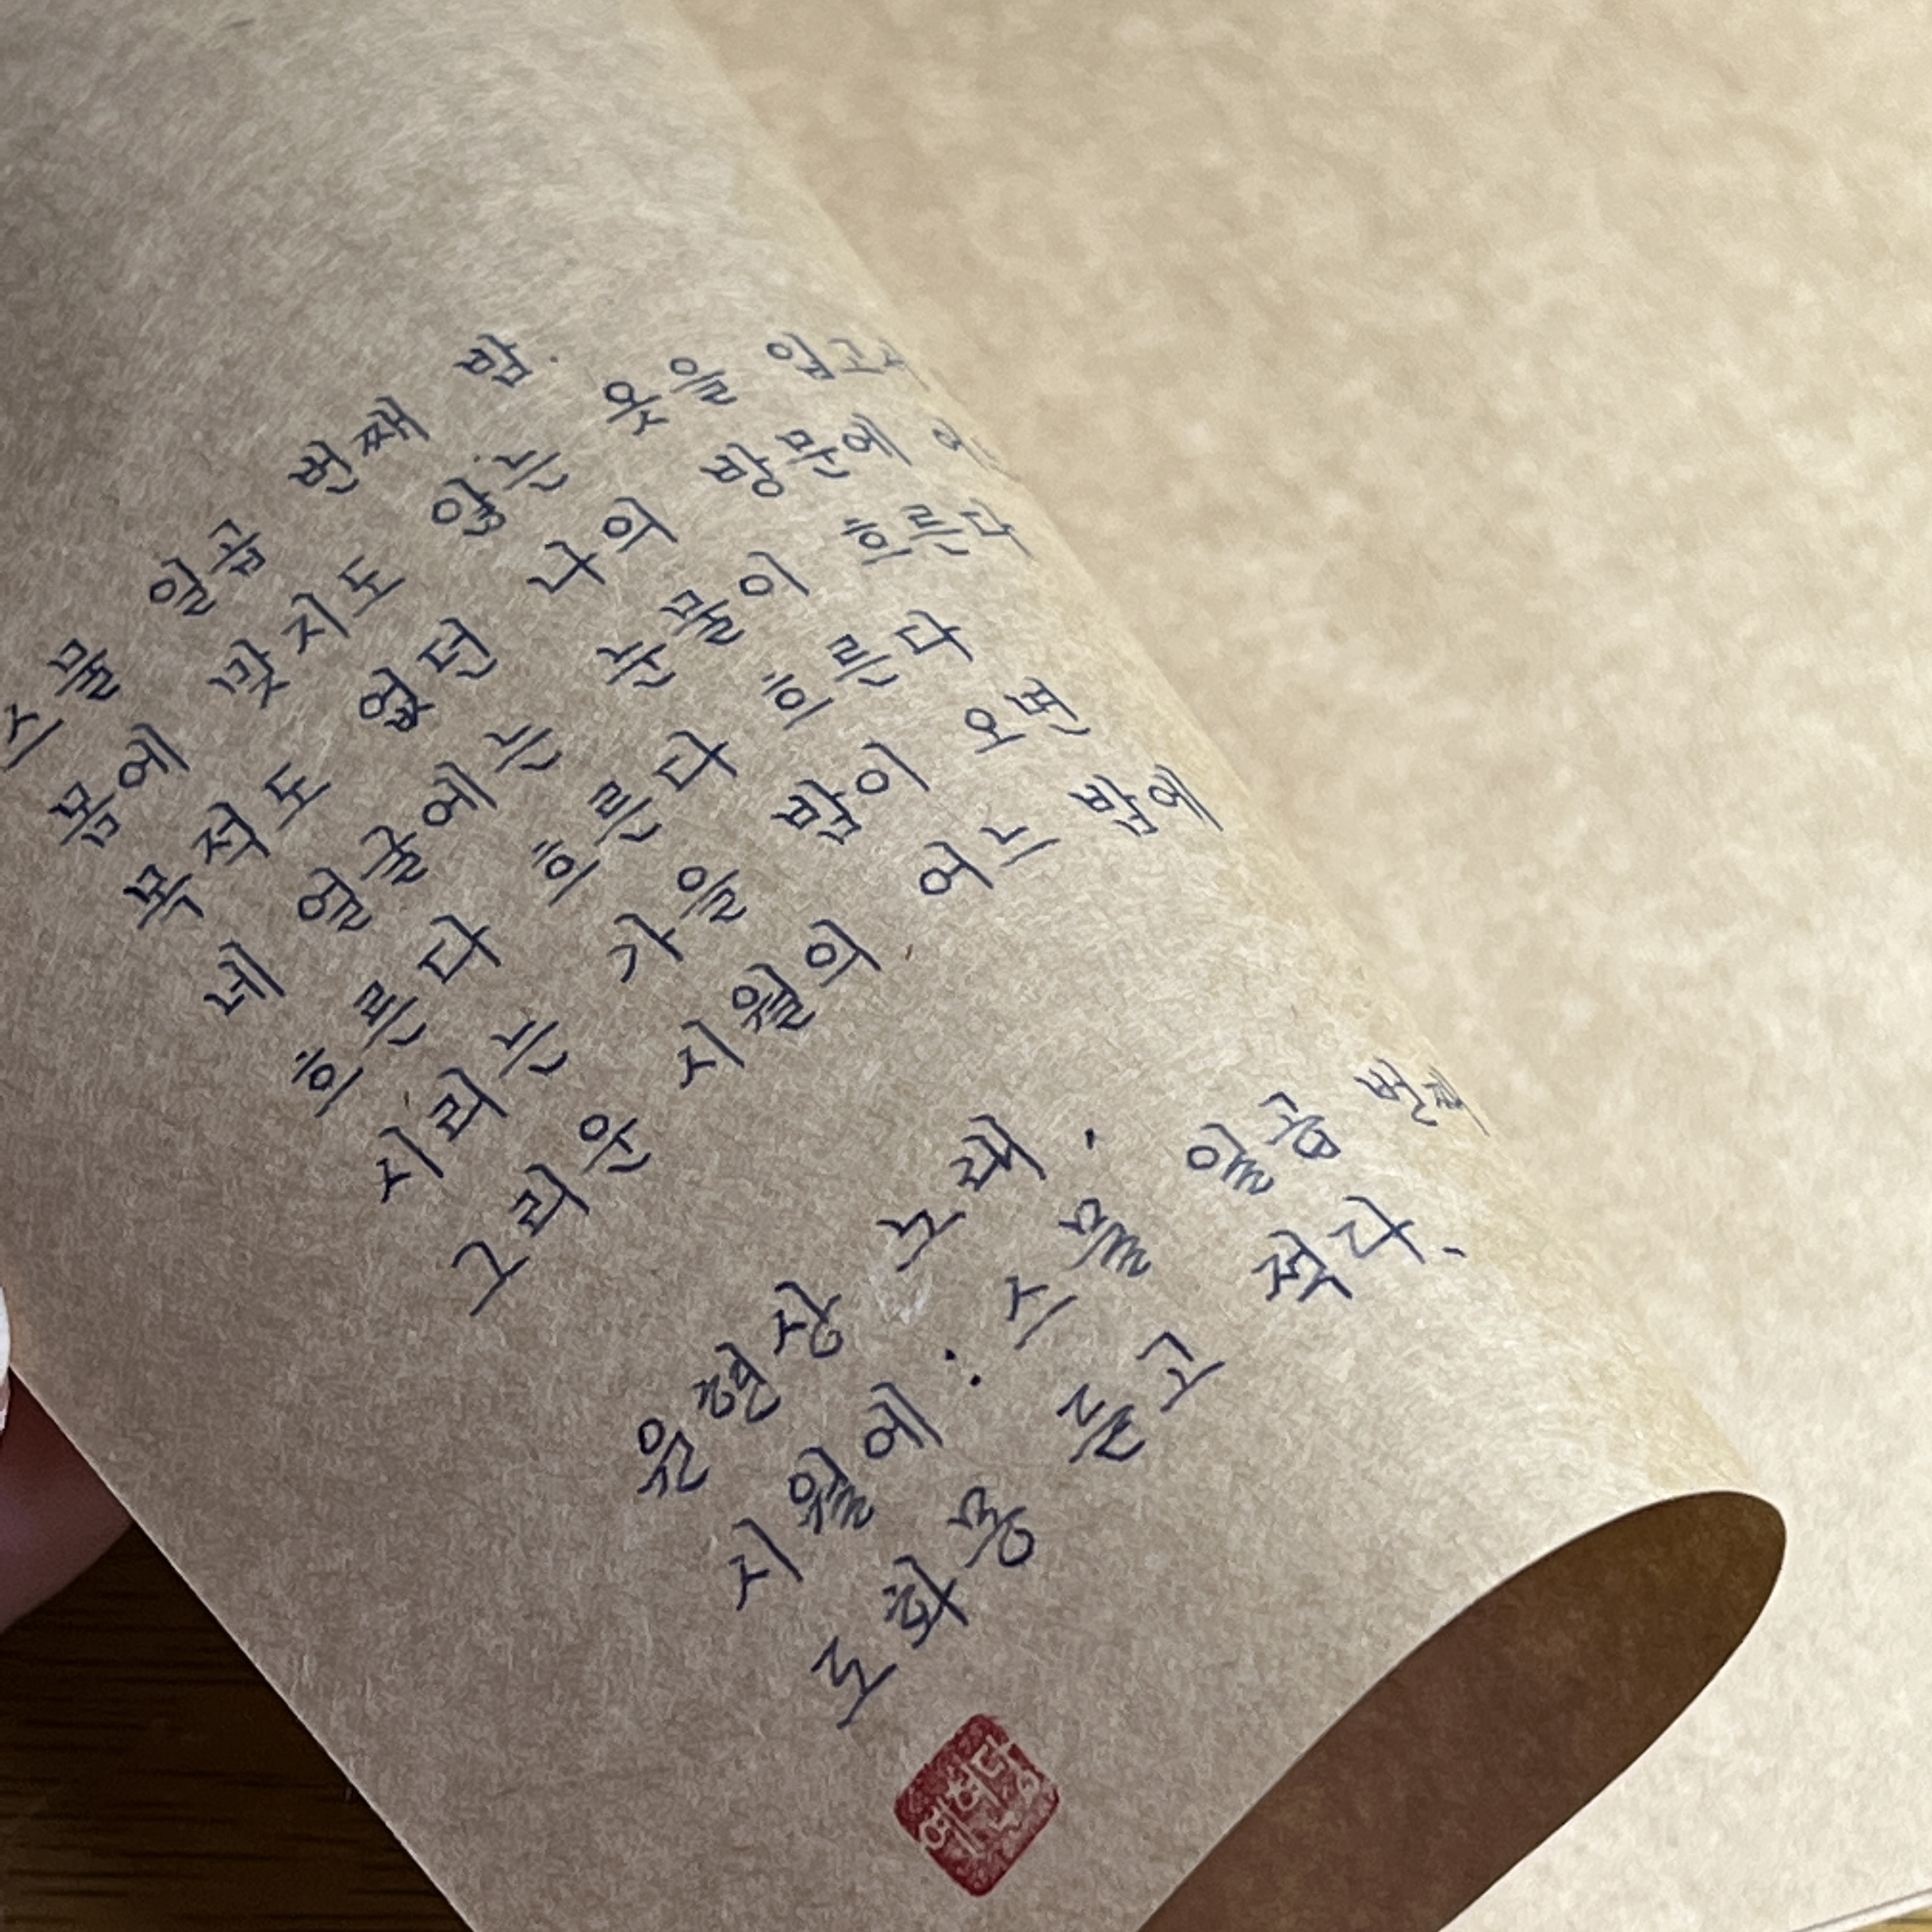 스물 일곱 번째 밤.
몸에 맞지도 않는 옷을 입고서
목적도 없던 나의 방문에
네 얼굴에는 눈물이 흐른다
흐른다 흐른다 흐른다
시리는 가을 밤이 오면
그리운 시월의 어느 밤에
윤현상 노래,
시월에 : 스물 일곱 번째
도화몽 듣고 적다.